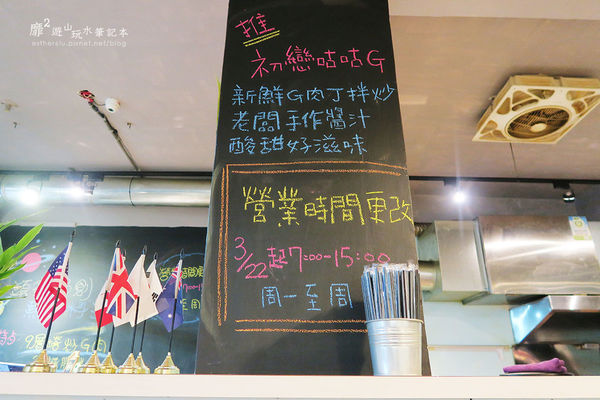 靡²遊山玩水筆記本
estherslu.pixnet.net/blog
推
初戀咕咕G
新鮮G肉丁拌炒
老闆手作醬汁
酸甜好滋味
營業時間更改
3/22起7:00-15:00
周一至周